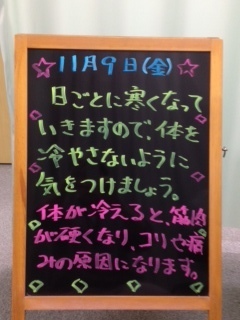 11月9日(金)
日ごとに寒くなって
いきますので、体を
冷やさないように
気をつけましょう。
体が冷えると、筋肉
が硬くなり、コリや痛
みの原因になります。